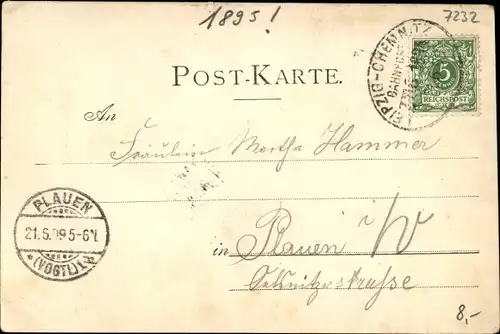 1895!
7232
LEIPZIG-CHEMNITZ
BAHNPOST
5
REICHSPOST
POST-KARTE.
An
Fräulein Martha Hammer
PLAUEN
21.5.99 5-6N.
*(VOGTL)1.*
in Plauen i/V
8,-